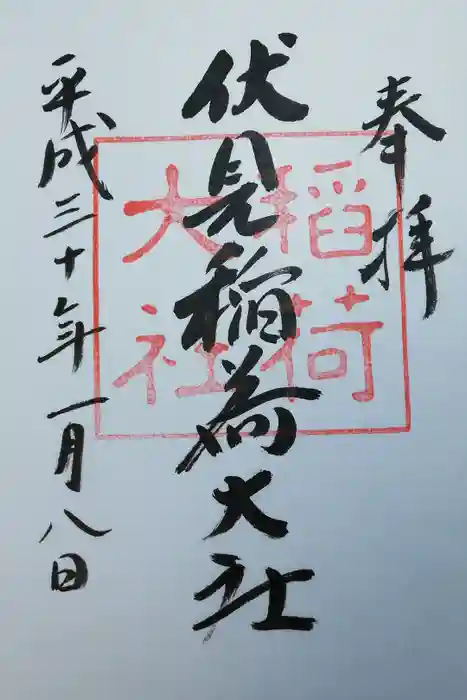 奉拝
伏見稲荷大社
平成三十年一月八日
稲荷
大社